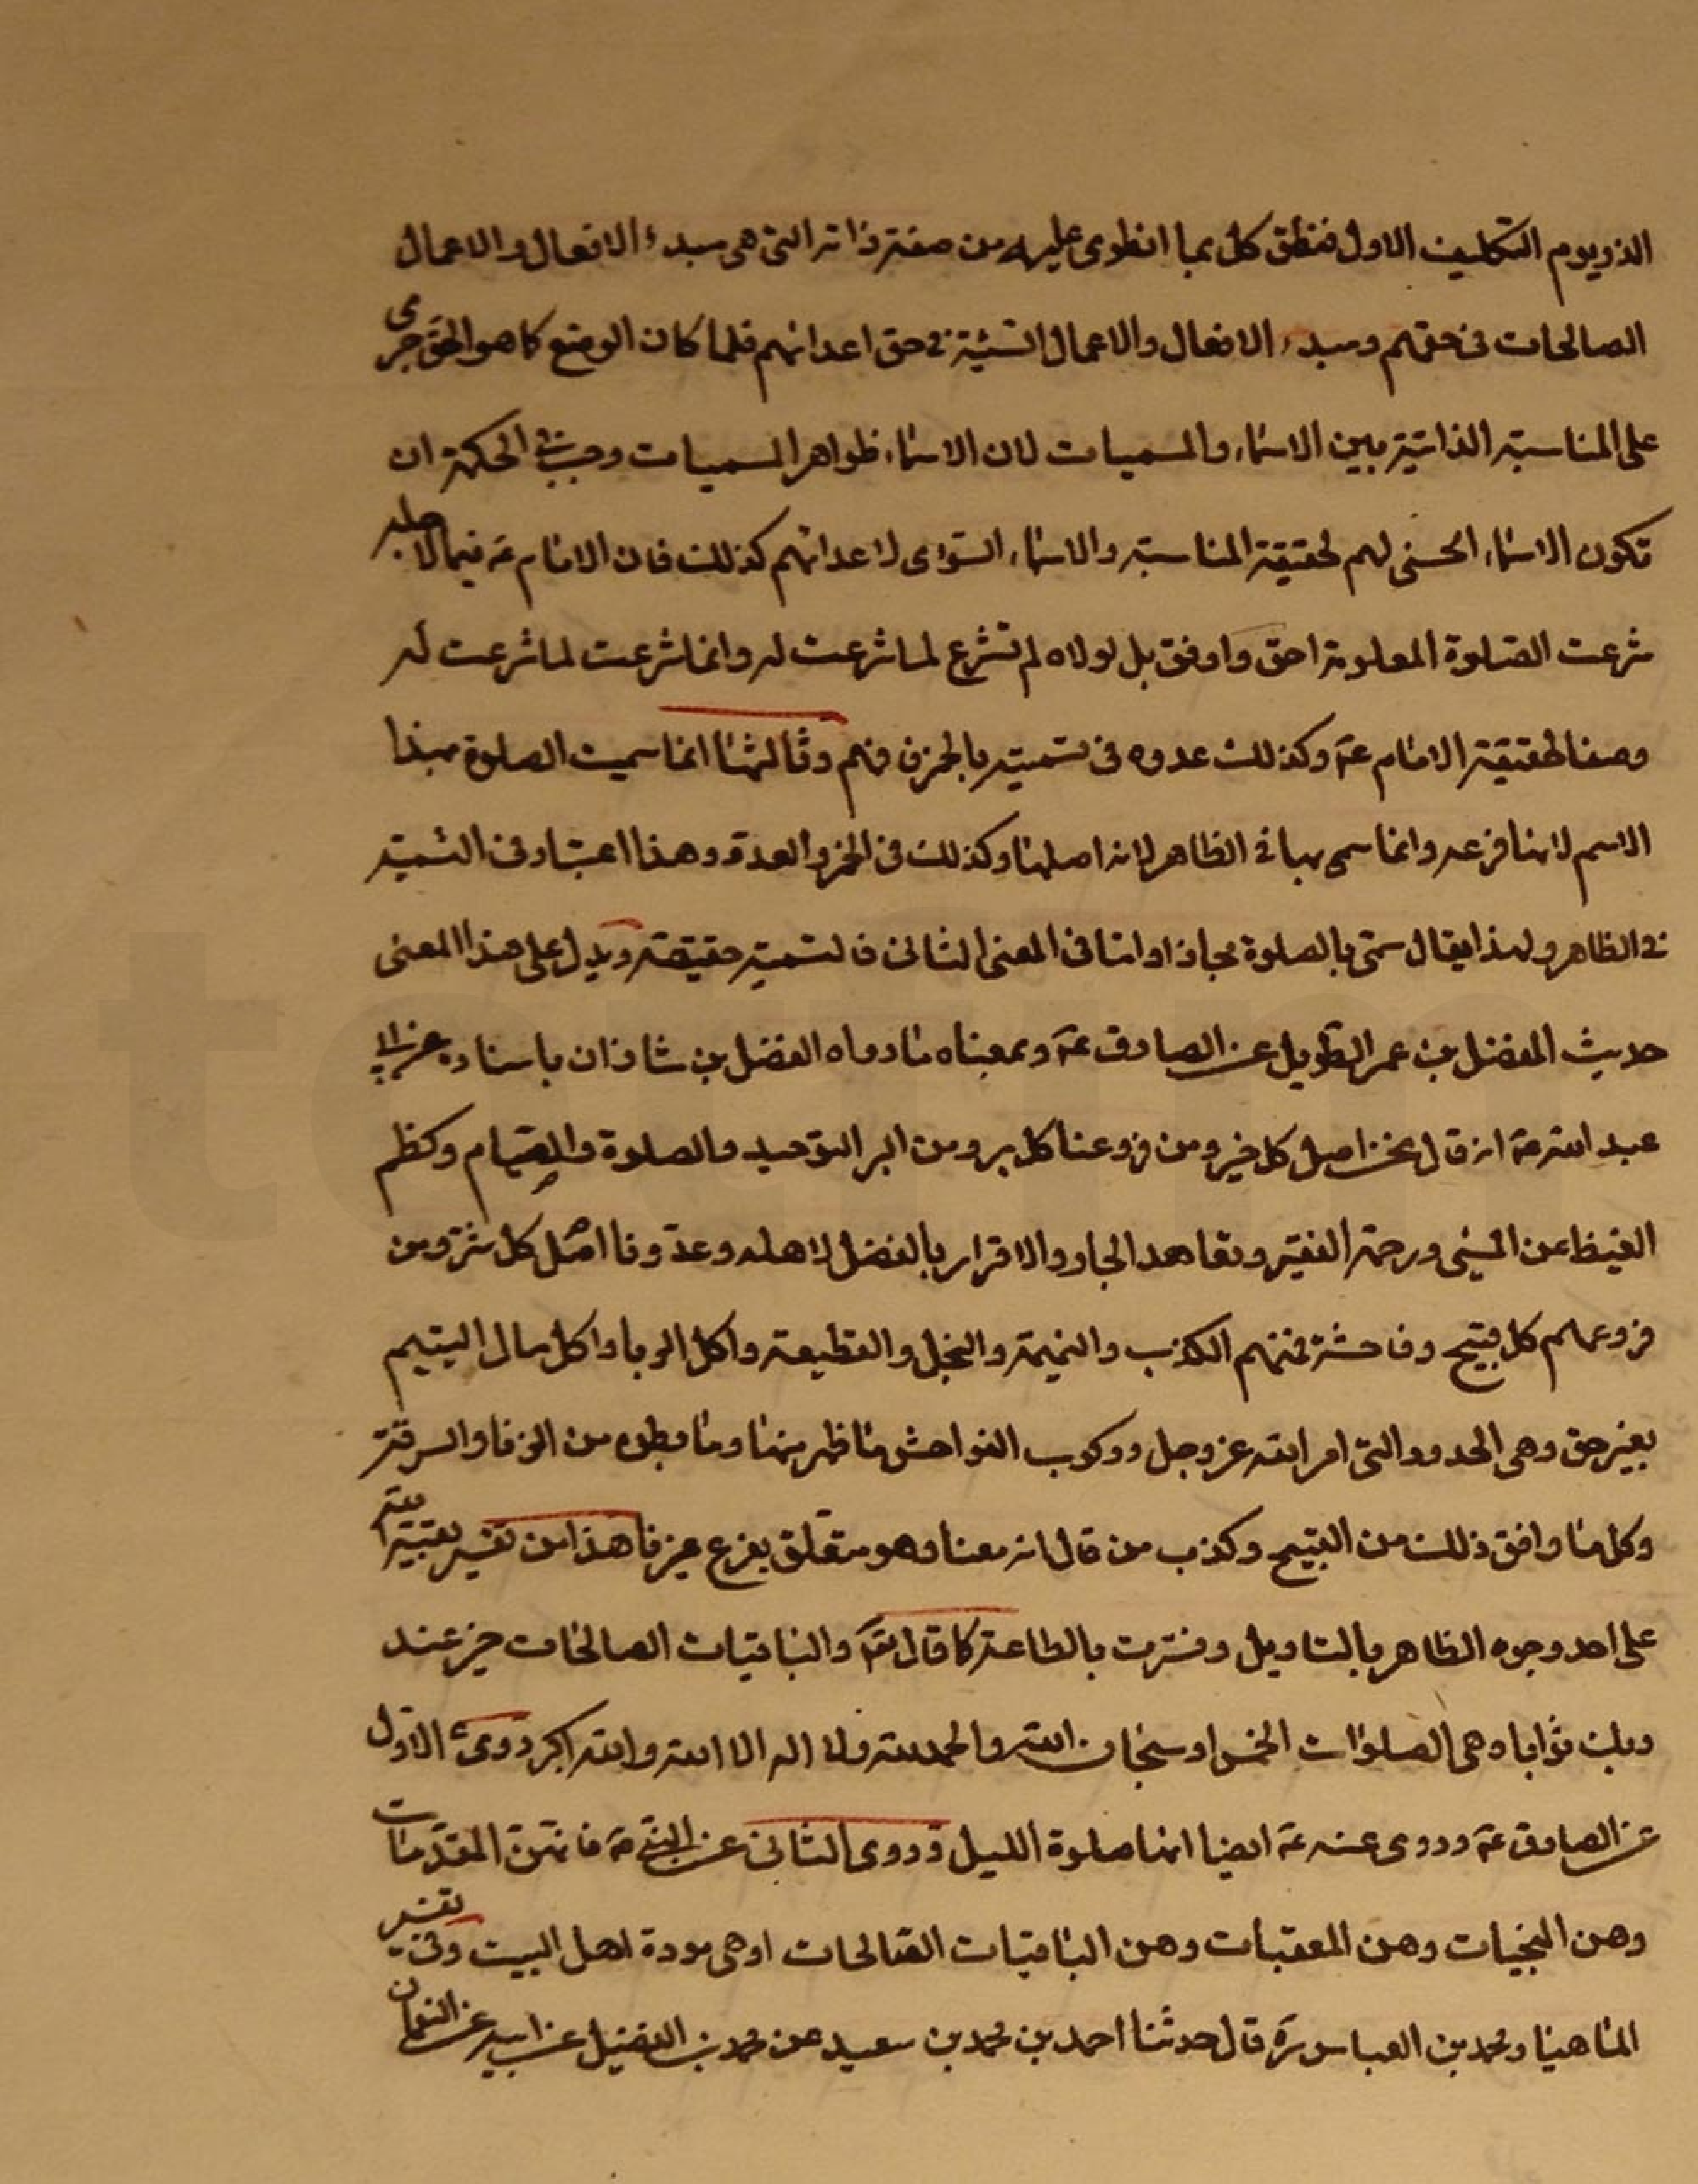 الذر يوم التكليف الاول فنطق كل بما انطوى عليه من صفة ذاته التى هى مبدء الافعال والاعمال
الصالحات فى حقهم ومبدء الافعال والاعمال السيئة فى حق اعدائهم فلما كان الوضع كما هو الحق جرى
على المناسبة الذاتية بين الاسماء والمسميات لان الاسماء ظواهر المسميات وجب فى الحكمة ان
تكون الاسماء الحسنى لهم لحقيقة المناسبة والاسماء السوءى لاعدائهم كذلك فان الامام ع فيما لاجله
شرعت الصلوة المعلومة احق واوفق بل لولاه لم تشرع لما شرعت له وانما شرعت لما شرعت له
وصفا لحقيقة الامام ع وكذلك عدوه فى تسميته بالخمر فهم وثالثها انما سميت الصلوة بهذا
الاسم لانها فرعه وانما سمى بها فى الظاهر لانه اصلها وكذلك فى الخمر والعدو وهذا اعتبار فى التسمية
فى الظاهر ولهذا يقال سمى بالصلوة مجازا واما فى المعنى الثانى فالتسمية حقيقة ويدل على هذا المعنى
حديث المفضل بن عمر الطويل عن الصادق ع وبمعناه ما رواه الفضل بن شاذان باسناده عن ابى
عبد الله ع انه قال نحن اصل كل خير ومن فروعنا كل بر ومن البر التوحيد والصلوة والصيام وكظم
الغيظ عن المسىء ورحمة الفقير وتعاهد الجار والاقرار بالفضل لاهله وعدونا اصل كل شر ومن
فروعهم كل قبيح وفاحشة فمنهم الكذب والنميمة والبخل والقطيعة واكل الربا واكل مال اليتيم
بغير حق وهى الحدود التى امر الله عز وجل وركوب الفواحش ما ظهر منها وما بطن من الزنا والسرقة
وكل ما وافق ذلك من القبيح وكذب من قال انه معنا وهو متعلق بفرع غيرنا هذا من تفسير
على احد وجوه الظاهر بالتاويل وفسرت بالطاعة كما قال تعالى والباقيات الصالحات خير عند
ربك ثوابا وهى الصلوات الخمس او سبحان الله والحمد لله ولا اله الا الله والله اكبر روى الاول
عن الصادق ع وروى عنه ع ايضا انها صلوة الليل وروى الثانى عن النبى ص فانهن المقدمات
وهن المنجيات وهن المعقبات وهن الباقيات الصالحات او هى مودة اهل البيت وفى تفسير
محمد بن العباس ره قال حدثنا احمد بن محمد بن سعيد عن محمد بن الفضيل عن ابيه عن النعمان